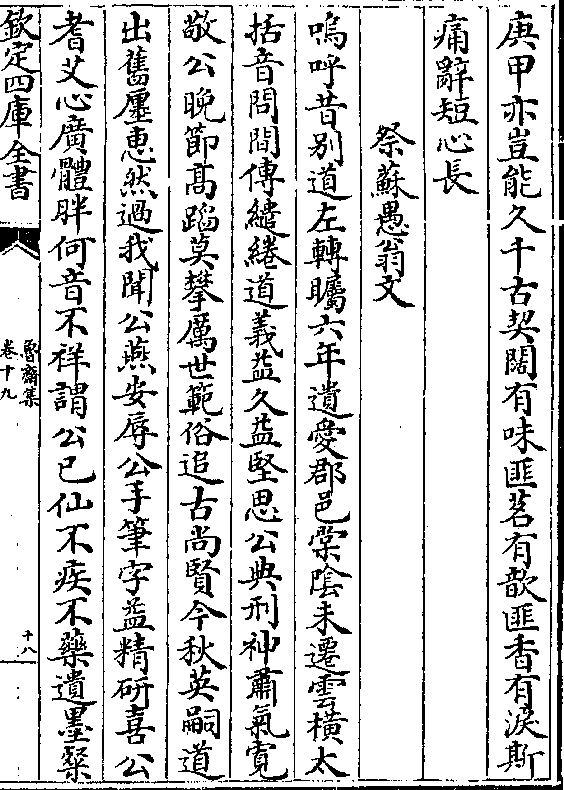 庚甲亦豈能久千古契闊有味匪茗有歆匪香有淚斯
痛辭短心長
祭蘇愚翁文
嗚呼昔别道左轉矚六年遺愛郡邑棠隂未遷雲橫太
括音問問傳繾綣道義益久益堅思公典刑神肅氣寛
敬公晚節髙蹈莫攀厲世範俗追古尚賢今秋英嗣道
出舊廛惠然過我聞公燕安辱公手筆字益精研喜公
耆艾心廣體胖何音不祥謂公已仙不疾不藥遺墨粲
欽定四庫全書
魯齋集
卷十九
十八